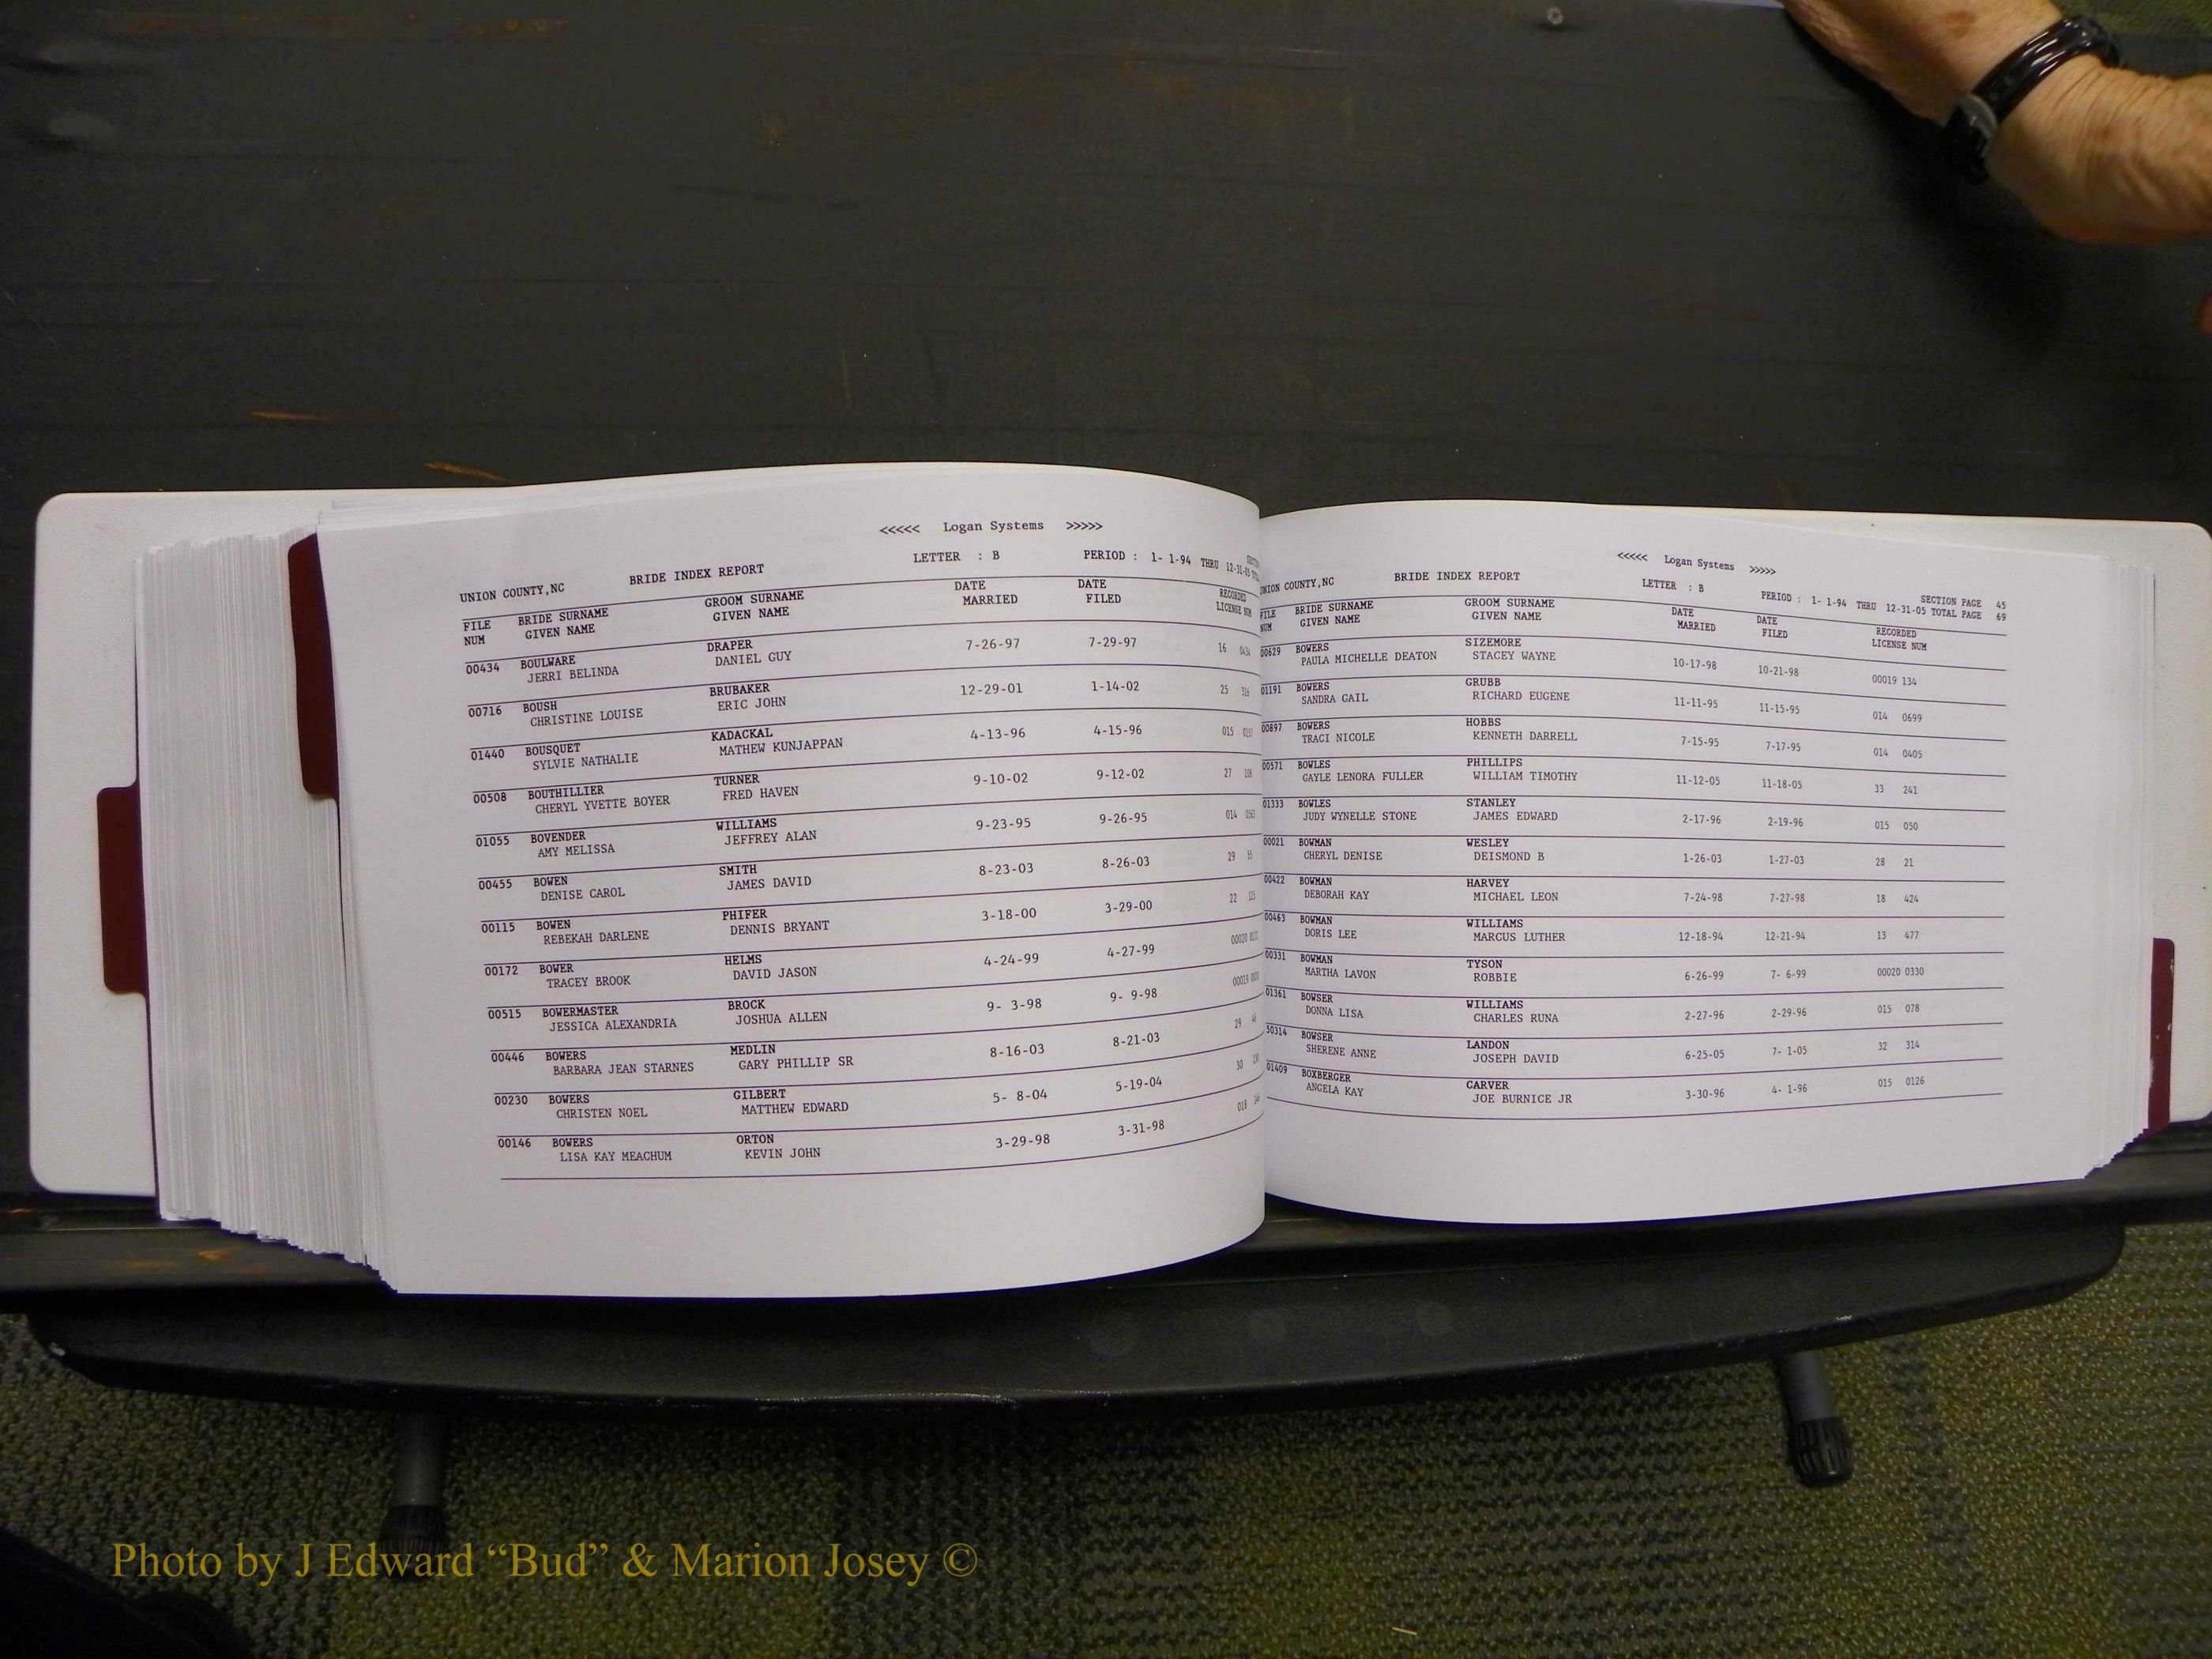 <<<<< Logan Systems >>>>>
UNION COUNTY,NC BRIDE INDEX REPORT LETTER : B PERIOD : 1- 1-94 THRU 12-31-05
FILE BRIDE SURNAME GROOM SURNAME DATE DATE RECORDED
NUM GIVEN NAME GIVEN NAME MARRIED FILED LICENSE NUM
00434 BOULWARE DRAPER 7-26-97 7-29-97 16
JERRI BELINDA DANIEL GUY
00716 BOUSH BRUBAKER 12-29-01 1-14-02 25
CHRISTINE LOUISE ERIC JOHN
01440 BOUSQUET KADACKAL 4-13-96 4-15-96 015
SYLVIE NATHALIE MATHEW KUNJAPPAN
00508 BOUTHILLIER TURNER 9-10-02 9-12-02 27
CHERYL YVETTE BOYER FRED HAVEN
01055 BOVENDER WILLIAMS 9-23-95 9-26-95 014
AMY MELISSA JEFFREY ALAN
00455 BOWEN SMITH 8-23-03 8-26-03 29
DENISE CAROL JAMES DAVID
00115 BOWEN PHIFER 3-18-00 3-29-00 22
REBEKAH DARLENE DENNIS BRYANT
00172 BOWER HELMS 4-24-99 4-27-99 00020
TRACEY BROOK DAVID JASON
00515 BOWERMASTER BROCK 9- 3-98 9- 9-98 00019
JESSICA ALEXANDRIA JOSHUA ALLEN
00446 BOWERS MEDLIN 8-16-03 8-21-03 29
BARBARA JEAN STARNES GARY PHILLIP SR
00230 BOWERS GILBERT 5- 8-04 5-19-04 30
CHRISTEN NOEL MATTHEW EDWARD
00146 BOWERS ORTON 3-29-98 3-31-98 018
LISA KAY MEACHUM KEVIN JOHN
<<<<< Logan Systems >>>>>
SECTION PAGE 45
UNION COUNTY,NC BRIDE INDEX REPORT LETTER : B PERIOD : 1- 1-94 THRU 12-31-05 TOTAL PAGE 69
FILE BRIDE SURNAME GROOM SURNAME DATE DATE RECORDED
NUM GIVEN NAME GIVEN NAME MARRIED FILED LICENSE NUM
00629 BOWERS SIZEMORE 10-17-98 10-21-98 00019 134
PAULA MICHELLE DEATON STACEY WAYNE
01191 BOWERS GRUBB 11-11-95 11-15-95 014 0699
SANDRA GAIL RICHARD EUGENE
00897 BOWERS HOBBS 7-15-95 7-17-95 014 0405
TRACI NICOLE KENNETH DARRELL
00571 BOWLES PHILLIPS 11-12-05 11-18-05 33 241
GAYLE LENORA FULLER WILLIAM TIMOTHY
01333 BOWLES STANLEY 2-17-96 2-19-96 015 050
JUDY WYNELLE STONE JAMES EDWARD
00021 BOWMAN WESLEY 1-26-03 1-27-03 28 21
CHERYL DENISE DEISMOND B
00422 BOWMAN HARVEY 7-24-98 7-27-98 18 424
DEBORAH KAY MICHAEL LEON
00463 BOWMAN WILLIAMS 12-18-94 12-21-94 13 477
DORIS LEE MARCUS LUTHER
00331 BOWMAN TYSON 6-26-99 7- 6-99 00020 0330
MARTHA LAVON ROBBIE
01361 BOWSER WILLIAMS 2-27-96 2-29-96 015 078
DONNA LISA CHARLES RUNA
50314 BOWSER LANDON 6-25-05 7- 1-05 32 314
SHERENE ANNE JOSEPH DAVID
01409 BOXBERGER CARVER 3-30-96 4- 1-96 015 0126
ANGELA KAY JOE BURNICE JR
Photo by J Edward “Bud” & Marion Josey ©